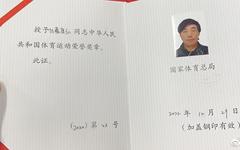 授予 同志中华人民
共和国体育运动荣誉奖章。
此证。
(2020)第 号
国家体育总局
年12月29日
(加盖钢印有效)